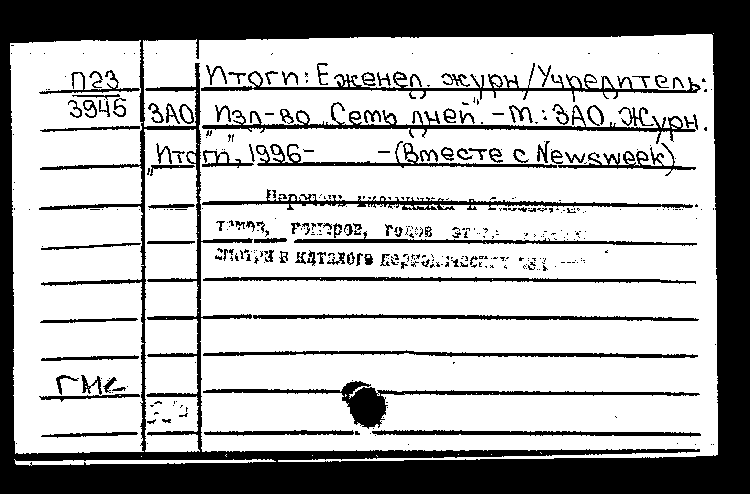 П23
3945
Итоги: Еженед. журн/Учредитель:
ЗАО Изд-во „Семь дней". -М.: ЗАО „Журн.
"Итоги", 1996- -(Вместе с Newsweek)
Перечень имеющихся в
томов, номеров, годов этого
смотри в каталоге периодических
ГМС